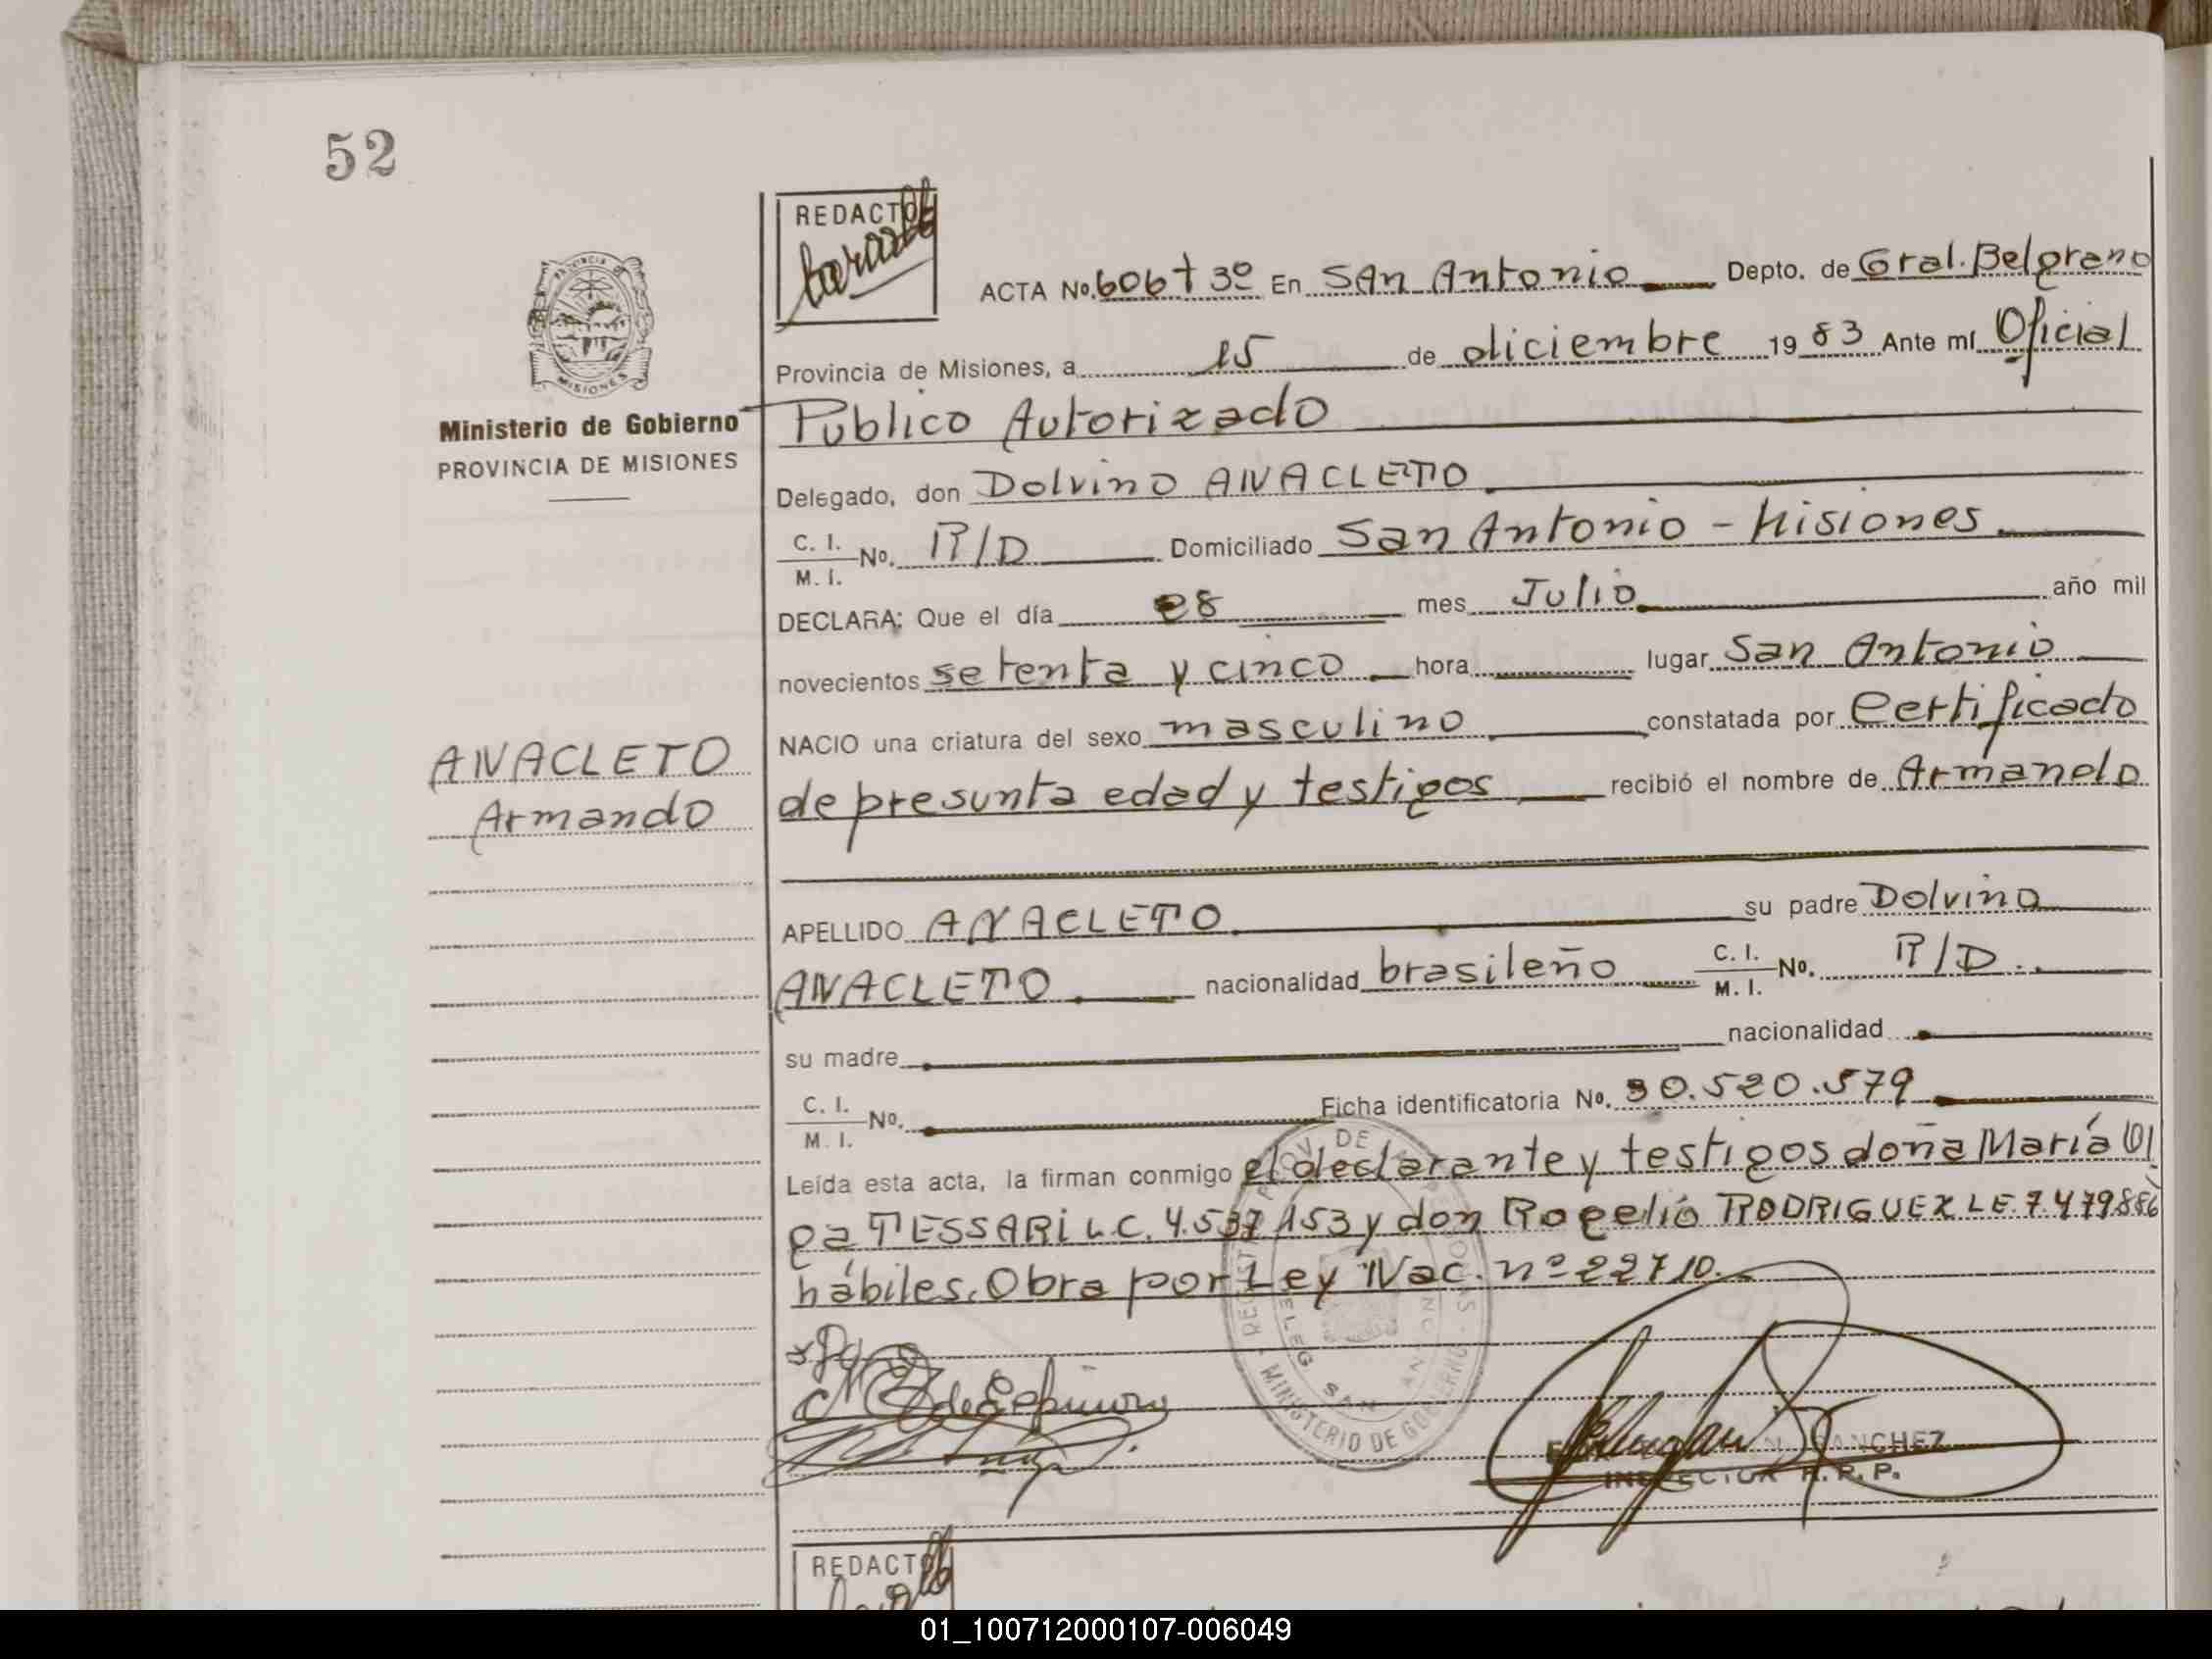 52
REDACTOR
ACTA No. 606 t 3º En San Antonio Depto. de Gral. Belgrano
Provincia de Misiones, a 15 de diciembre 1983 Ante mí Oficial
Publico Autorizado
Delegado, don Dolvino ANACLETO
C. I. / M. I. No. R/D Domiciliado San Antonio - Misiones.
DECLARA: Que el día 28 mes Julio año mil
novecientos setenta y cinco hora lugar San Antonio
NACIO una criatura del sexo masculino constatada por Certificado
de presunta edad y testigos recibió el nombre de Armando
APELLIDO ANACLETO su padre Dolvino
ANACLETO nacionalidad brasileño C. I. / M. I. No. R/D.
su madre nacionalidad
C. I. / M. I. No. Ficha identificatoria No. 30.520.579
Leída esta acta, la firman conmigo el declarante y testigos doña María Ol
ga TESSARI L.C. 4.537.153 y don Rogelio RODRIGUEZ LE. 7.479.886
hábiles. Obra por Ley Nac. nº 22710.
PROVINCIA DE MISIONES
Ministerio de Gobierno
PROVINCIA DE MISIONES
ANACLETO
Armando
MINISTERIO DE GOBIERNO
DELEG. SAN ANTONIO
SANCHEZ
INSPECTOR R. P. P.
REDACTOR
01_100712000107-006049